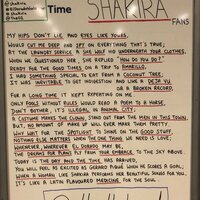 Time SHAKIRA
FANS
MY HIPS DON'T LIE AND EYES LIKE YOURS
WOULD CUT ME DEEP AND SPY ON EVERYTHING THAT'S TRUE;
AT THE LAUNDRY SERVICE A SHE WOLF HID UNDERNEATH YOUR CLOTHES,
WHEN WE QUESTIONED HER, SHE REPLIED "HOW DO YOU DO?"
READY FOR THE GOOD TIMES ON A TRIP TO AMARILLO,
I HAD SOMETHING SPECIAL TO EAT FROM A COCONUT TREE.
IT WAS INEVITABLE TO GET INDIGESTION AND LIKE A DEJA VU
OR A BROKEN RECORD,
FOR A LONG TIME IT KEPT REPEATING ON ME.
ONLY FOOLS WITHOUT RULES WOULD READ A POEM TO A HORSE,
DON'T BOTHER, IT'S ILLEGAL IN ANIMAL CITY.
A COSTUME MAKES THE CLOWN, STAND OUT FROM THE MEN IN THIS TOWN,
BUT, NO AMOUNT OF MAKE UP WILL EVER MAKE THEM PRETTY.
WHY WAIT FOR THE SPOTLIGHT TO SHINE ON THE GOOD STUFF,
NOTHING ELSE MATTERS WHEN THE ONE THING WE NEED IS LOVE.
WHENEVER, WHEREVER EL DORADO MAY BE,
THE DREAMS FOR PLANS FLY FROM YOUR EMBRACE TO THE SKY ABOVE
TODAY IS THE DAY AND THE TIME HAS ARRIVED,
YOU WILL FEEL AS EXCITED AS GERARD PIQUE WHEN HE SCORES A GOAL,
WHEN A WOMAN LIKE SHAKIRA PERFORMS HER BEAUTIFUL SONGS FOR YOU,
IT'S LIKE A LATIN FLAVOURED MEDICINE FOR THE SOUL.